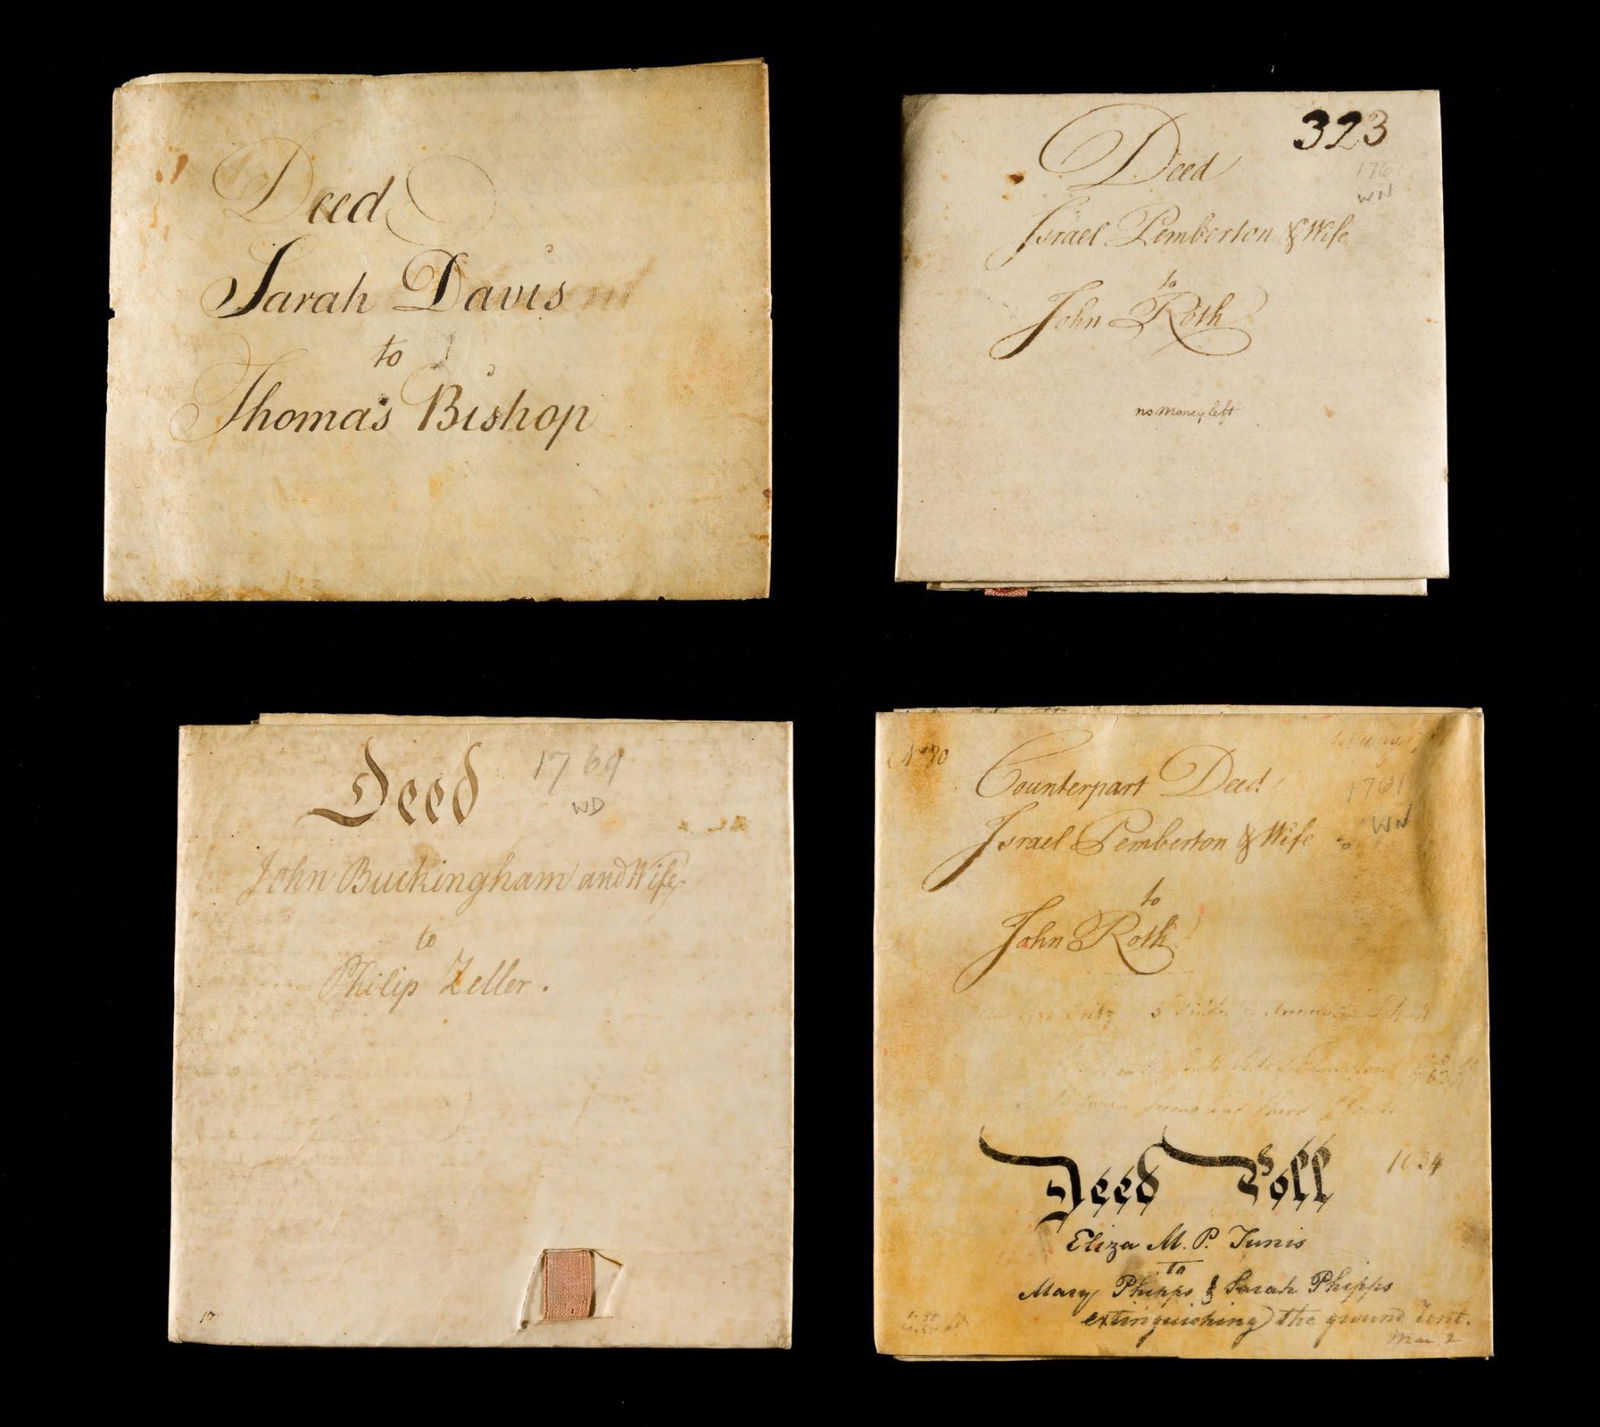 Deed
Sarah Davis
to
Thomas Bishop
323
Deed
176
WN
Israel Pemberton & Wife
to
John Roth
no money left
Deed
1769
WD
John Buckingham and Wife
to
Philip Zeller.
10
No 80
Counterpart Deed
1761
WN
Israel Pemberton & Wife
to
John Roth
Deed Poll
Eliza M. P. Tunis
to
Mary Phipps & Sarah Phipps
extinguishing the ground rent.